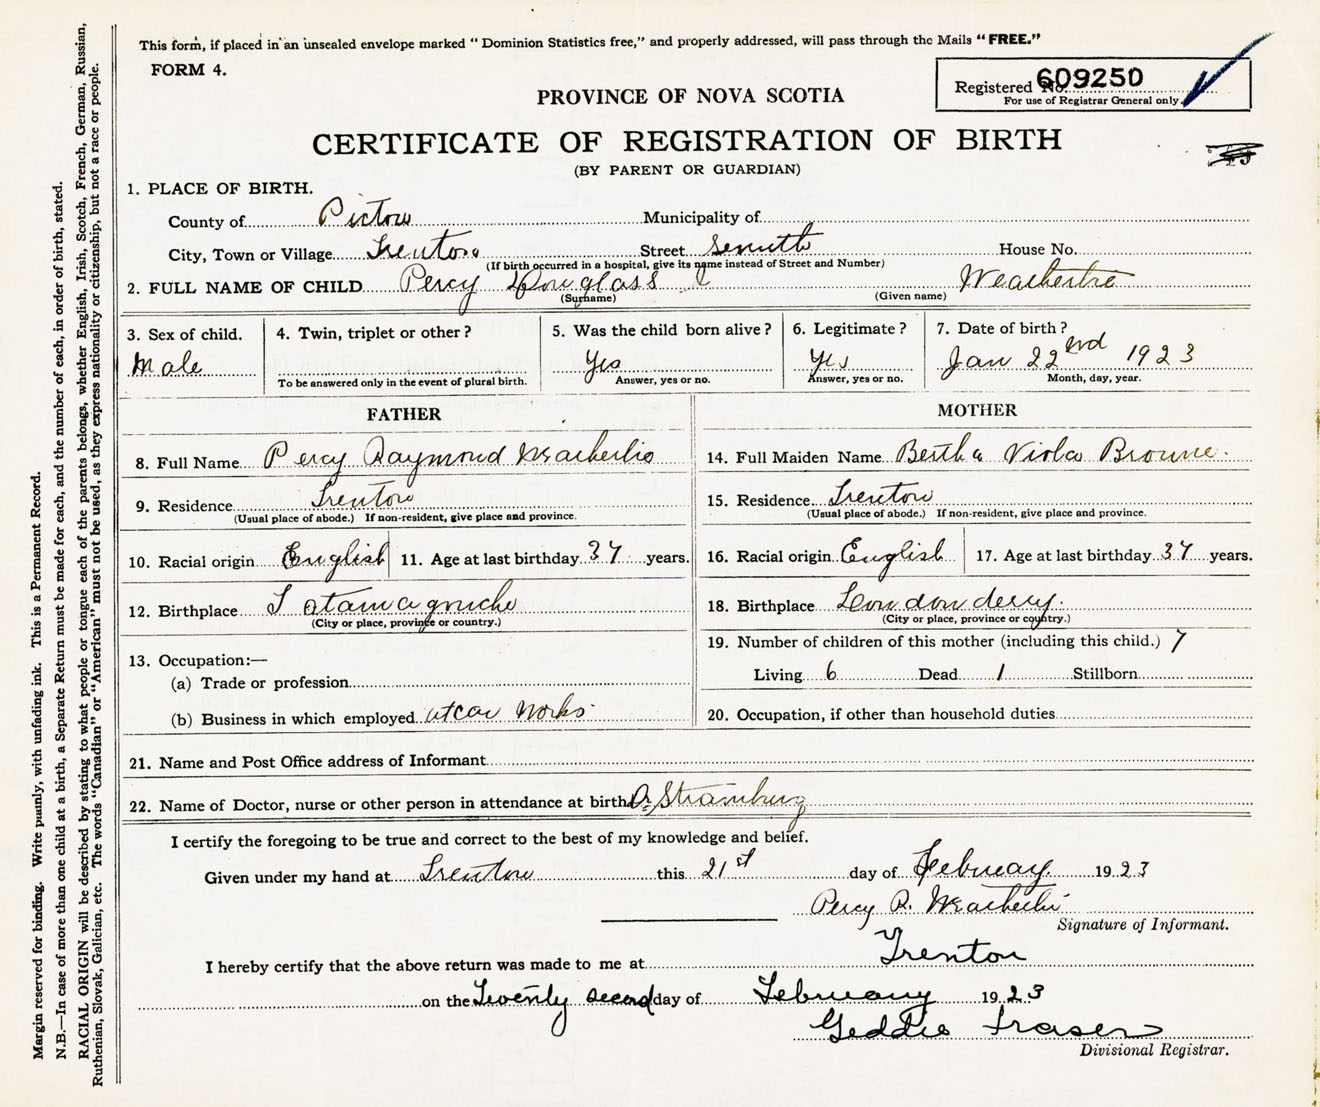 This form, if placed in an unsealed envelope marked "Dominion Statistics free," and properly addressed, will pass through the Mails "FREE."
FORM 4.
Registered No. 609250
For use of Registrar General only.
PROVINCE OF NOVA SCOTIA
CERTIFICATE OF REGISTRATION OF BIRTH
(BY PARENT OR GUARDIAN)
1. PLACE OF BIRTH.
County of Pictou Municipality of
City, Town or Village Trenton Street House No.
(If birth occurred in a hospital, give its name instead of Street and Number)
2. FULL NAME OF CHILD Percy Douglass
(Surname) (Given name)
3. Sex of child. Male
4. Twin, triplet or other?
To be answered only in the event of plural birth.
5. Was the child born alive? Yes
Answer, yes or no.
6. Legitimate? Yes
Answer, yes or no.
7. Date of birth? Jan 22nd 1923
Month, day, year.
FATHER
8. Full Name Percy Raymond
9. Residence Trenton
(Usual place of abode.) If non-resident, give place and province.
10. Racial origin English 11. Age at last birthday 37 years.
12. Birthplace
(City or place, province or country.)
13. Occupation:—
(a) Trade or profession
(b) Business in which employed Works
MOTHER
14. Full Maiden Name Bertha Viola Browne.
15. Residence Trenton
(Usual place of abode.) If non-resident, give place and province.
16. Racial origin English 17. Age at last birthday 37 years.
18. Birthplace Londonderry.
(City or place, province or country.)
19. Number of children of this mother (including this child.) 7
Living 6 Dead 1 Stillborn
20. Occupation, if other than household duties
21. Name and Post Office address of Informant
22. Name of Doctor, nurse or other person in attendance at birth Dr. Stramberg
I certify the foregoing to be true and correct to the best of my knowledge and belief.
Given under my hand at Trenton this 21st day of February 1923
Percy R.
Signature of Informant.
I hereby certify that the above return was made to me at Trenton
on the Twenty second day of February 1923
Geddie Fraser
Divisional Registrar.
Margin reserved for binding. Write plainly, with unfading ink. This is a Permanent Record.
N.B.—In case of more than one child at a birth, a Separate Return must be made for each, and the number of each, in order of birth, stated.
RACIAL ORIGIN will be described by stating to what people or tongue each of the parents belongs, whether English, Irish, Scotch, French, German, Russian,
Ruthenian, Slovak, Galician, etc. The words "Canadian" or "American" must not be used, as they express nationality or citizenship, but not a race or people.